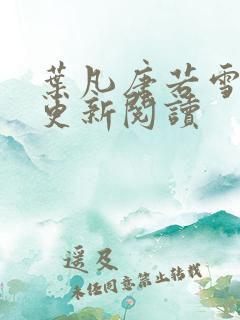 葉凡唐若雪
更新閱讀
遥及
未经同意禁止转载